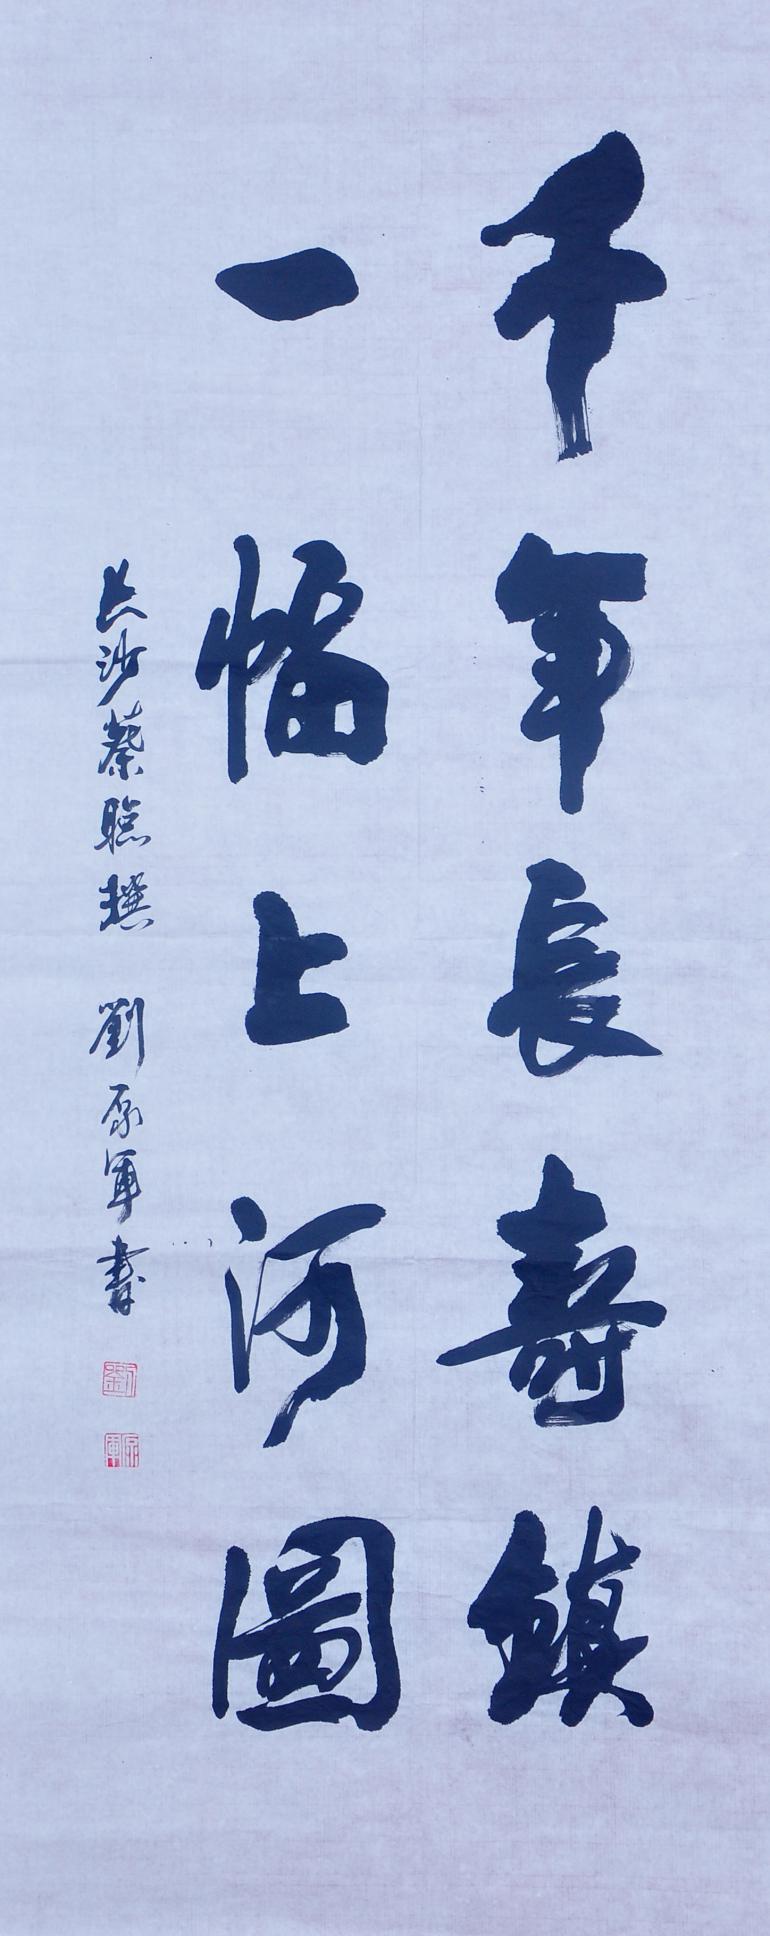 千年長壽鎮
一幅上河圖
長沙蔡聰撰 劉原軍書
劉
原軍